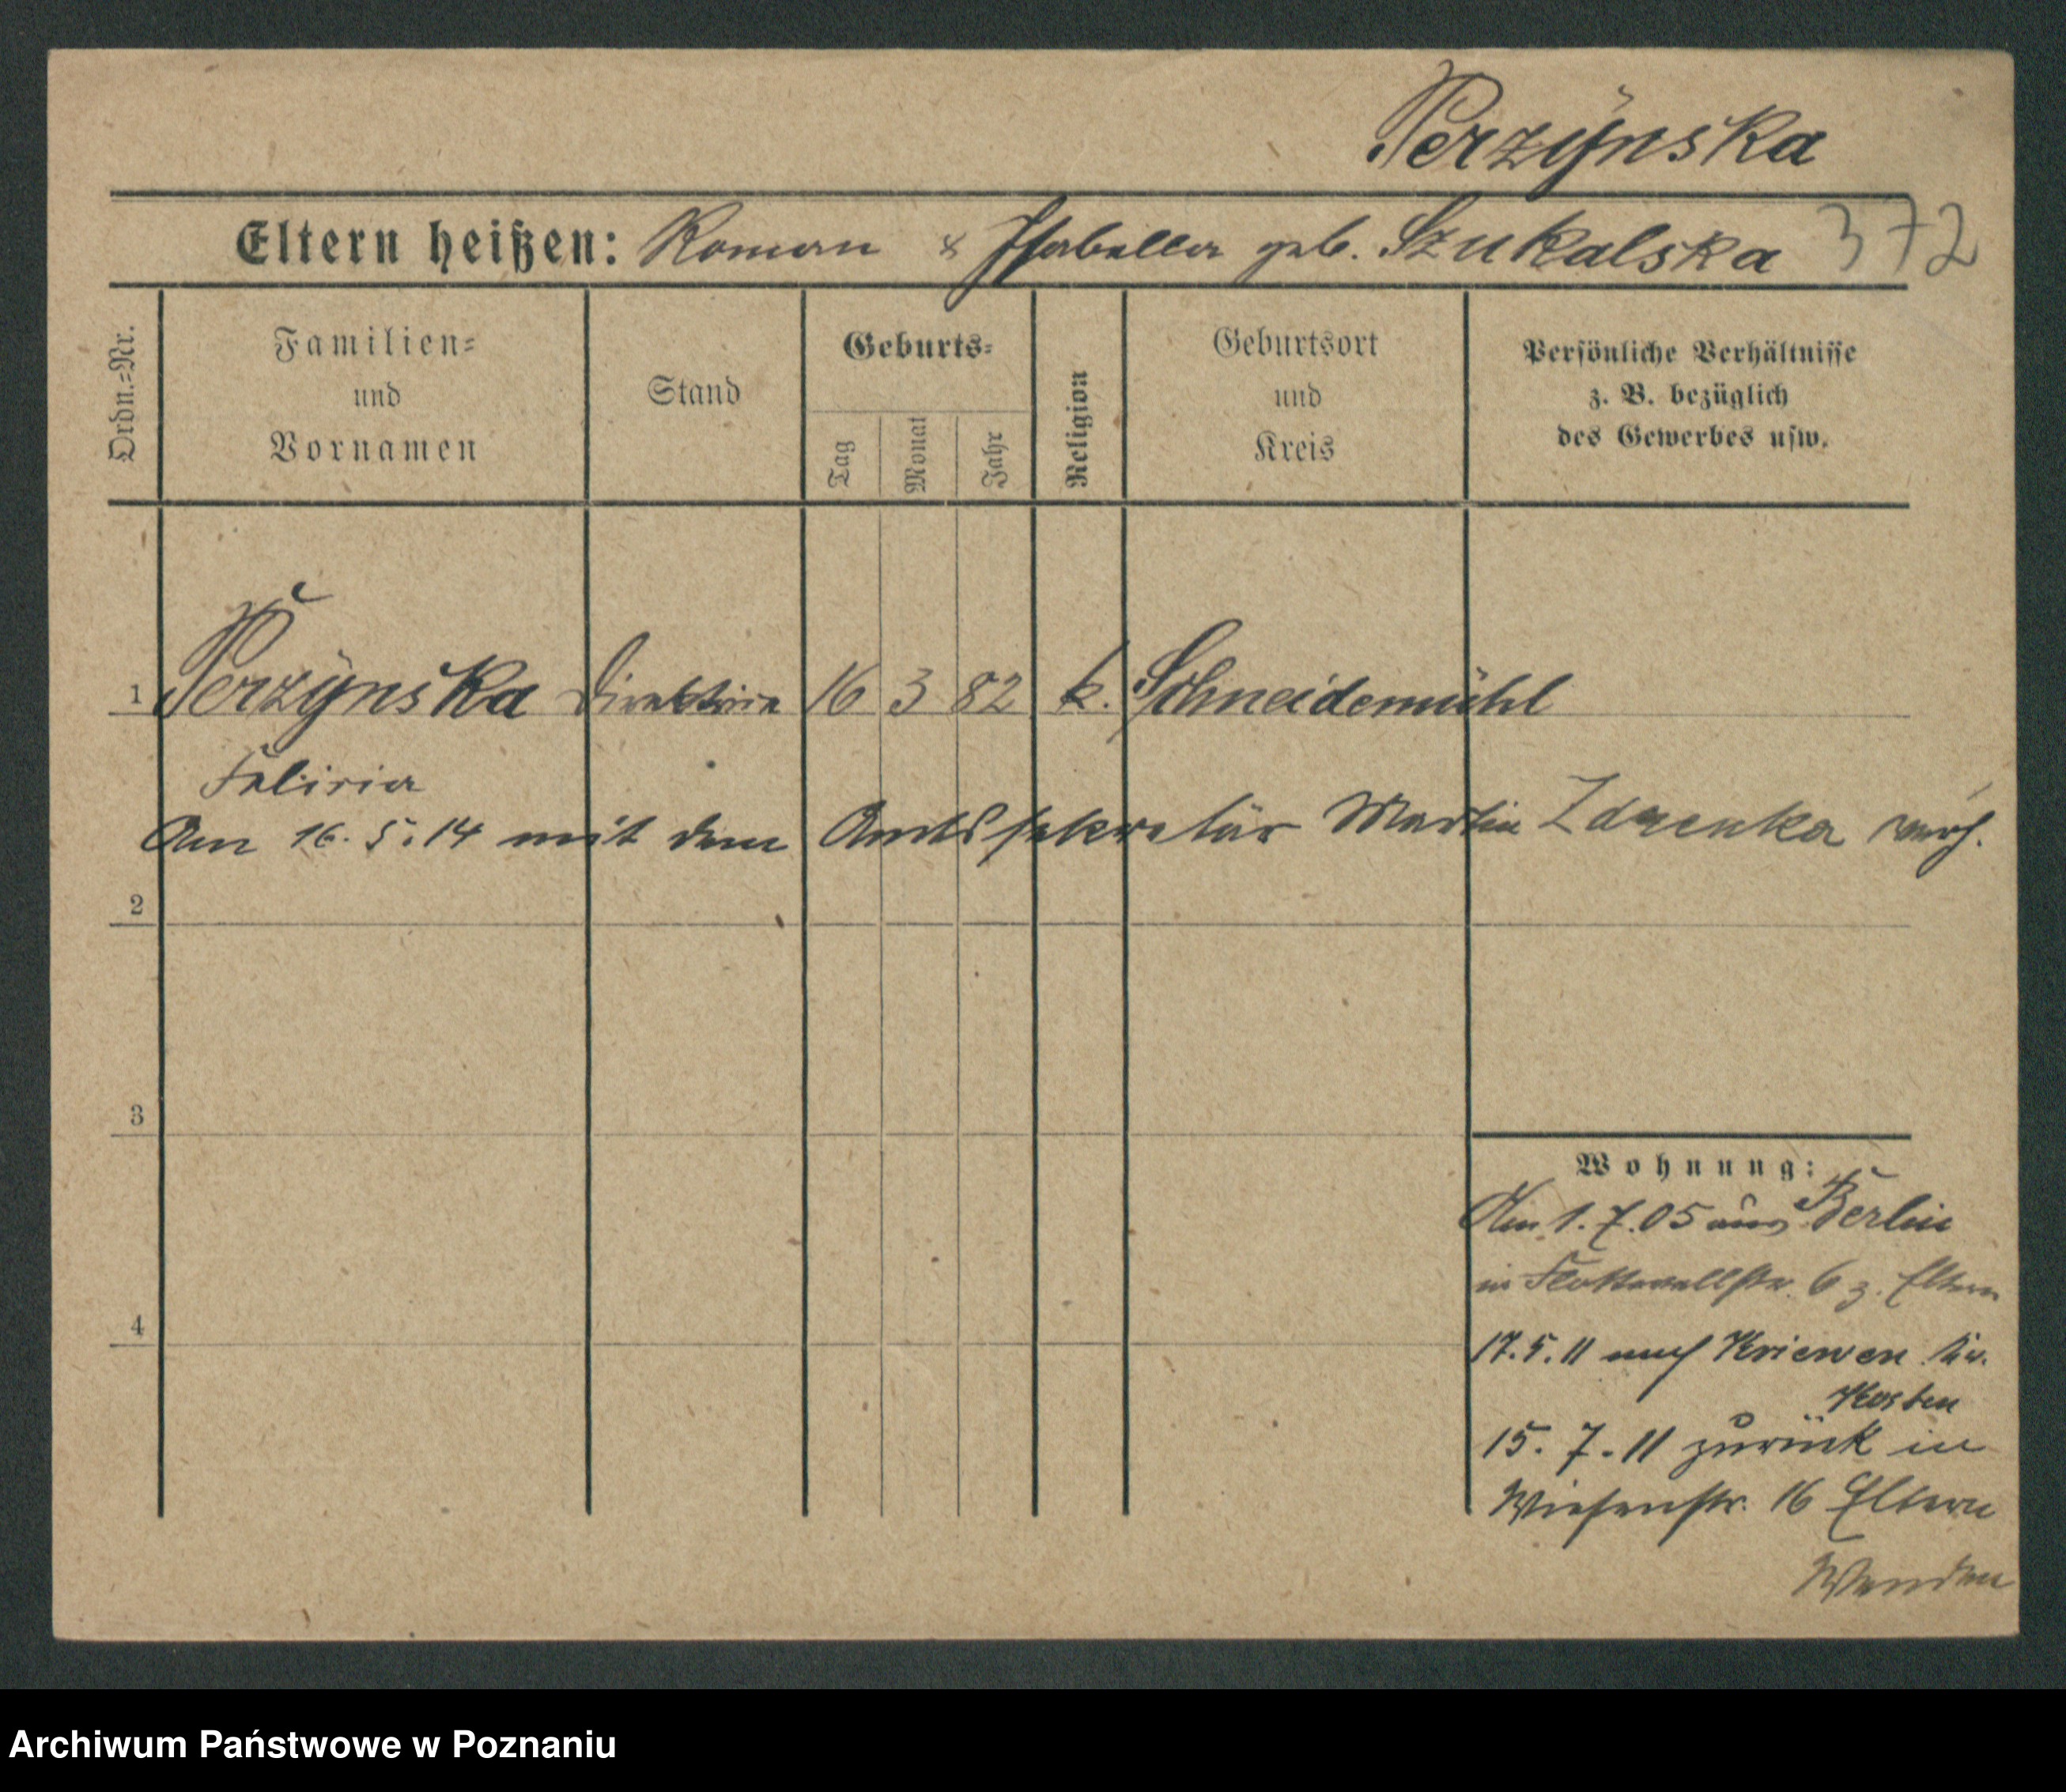 Perzynska
Eltern heißen: Roman & Isabella geb. Szukalska 372
Ordn.-Nr.
Familien-
und
Vornamen
Stand
Geburts-
Tag
Monat
Jahr
Religion
Geburtsort
und
Kreis
Persönliche Verhältnisse
z. B. bezüglich
des Gewerbes usw.
1 Perzynska Direktrice 16 3 82 k. Schneidemühl
Felicia
Am 16.5.14 mit dem Amtssekretär Martin verh.
2
3
4
Wohnung:
Am 1.7.05 aus Berlin
in Flottwellstr. 6 z. Eltern
17.5.11 nach Kriewen Kr.
Kosten
15.7.11 zurück in
Wiesenstr. 16 Eltern
Wenden
Archiwum Państwowe w Poznaniu